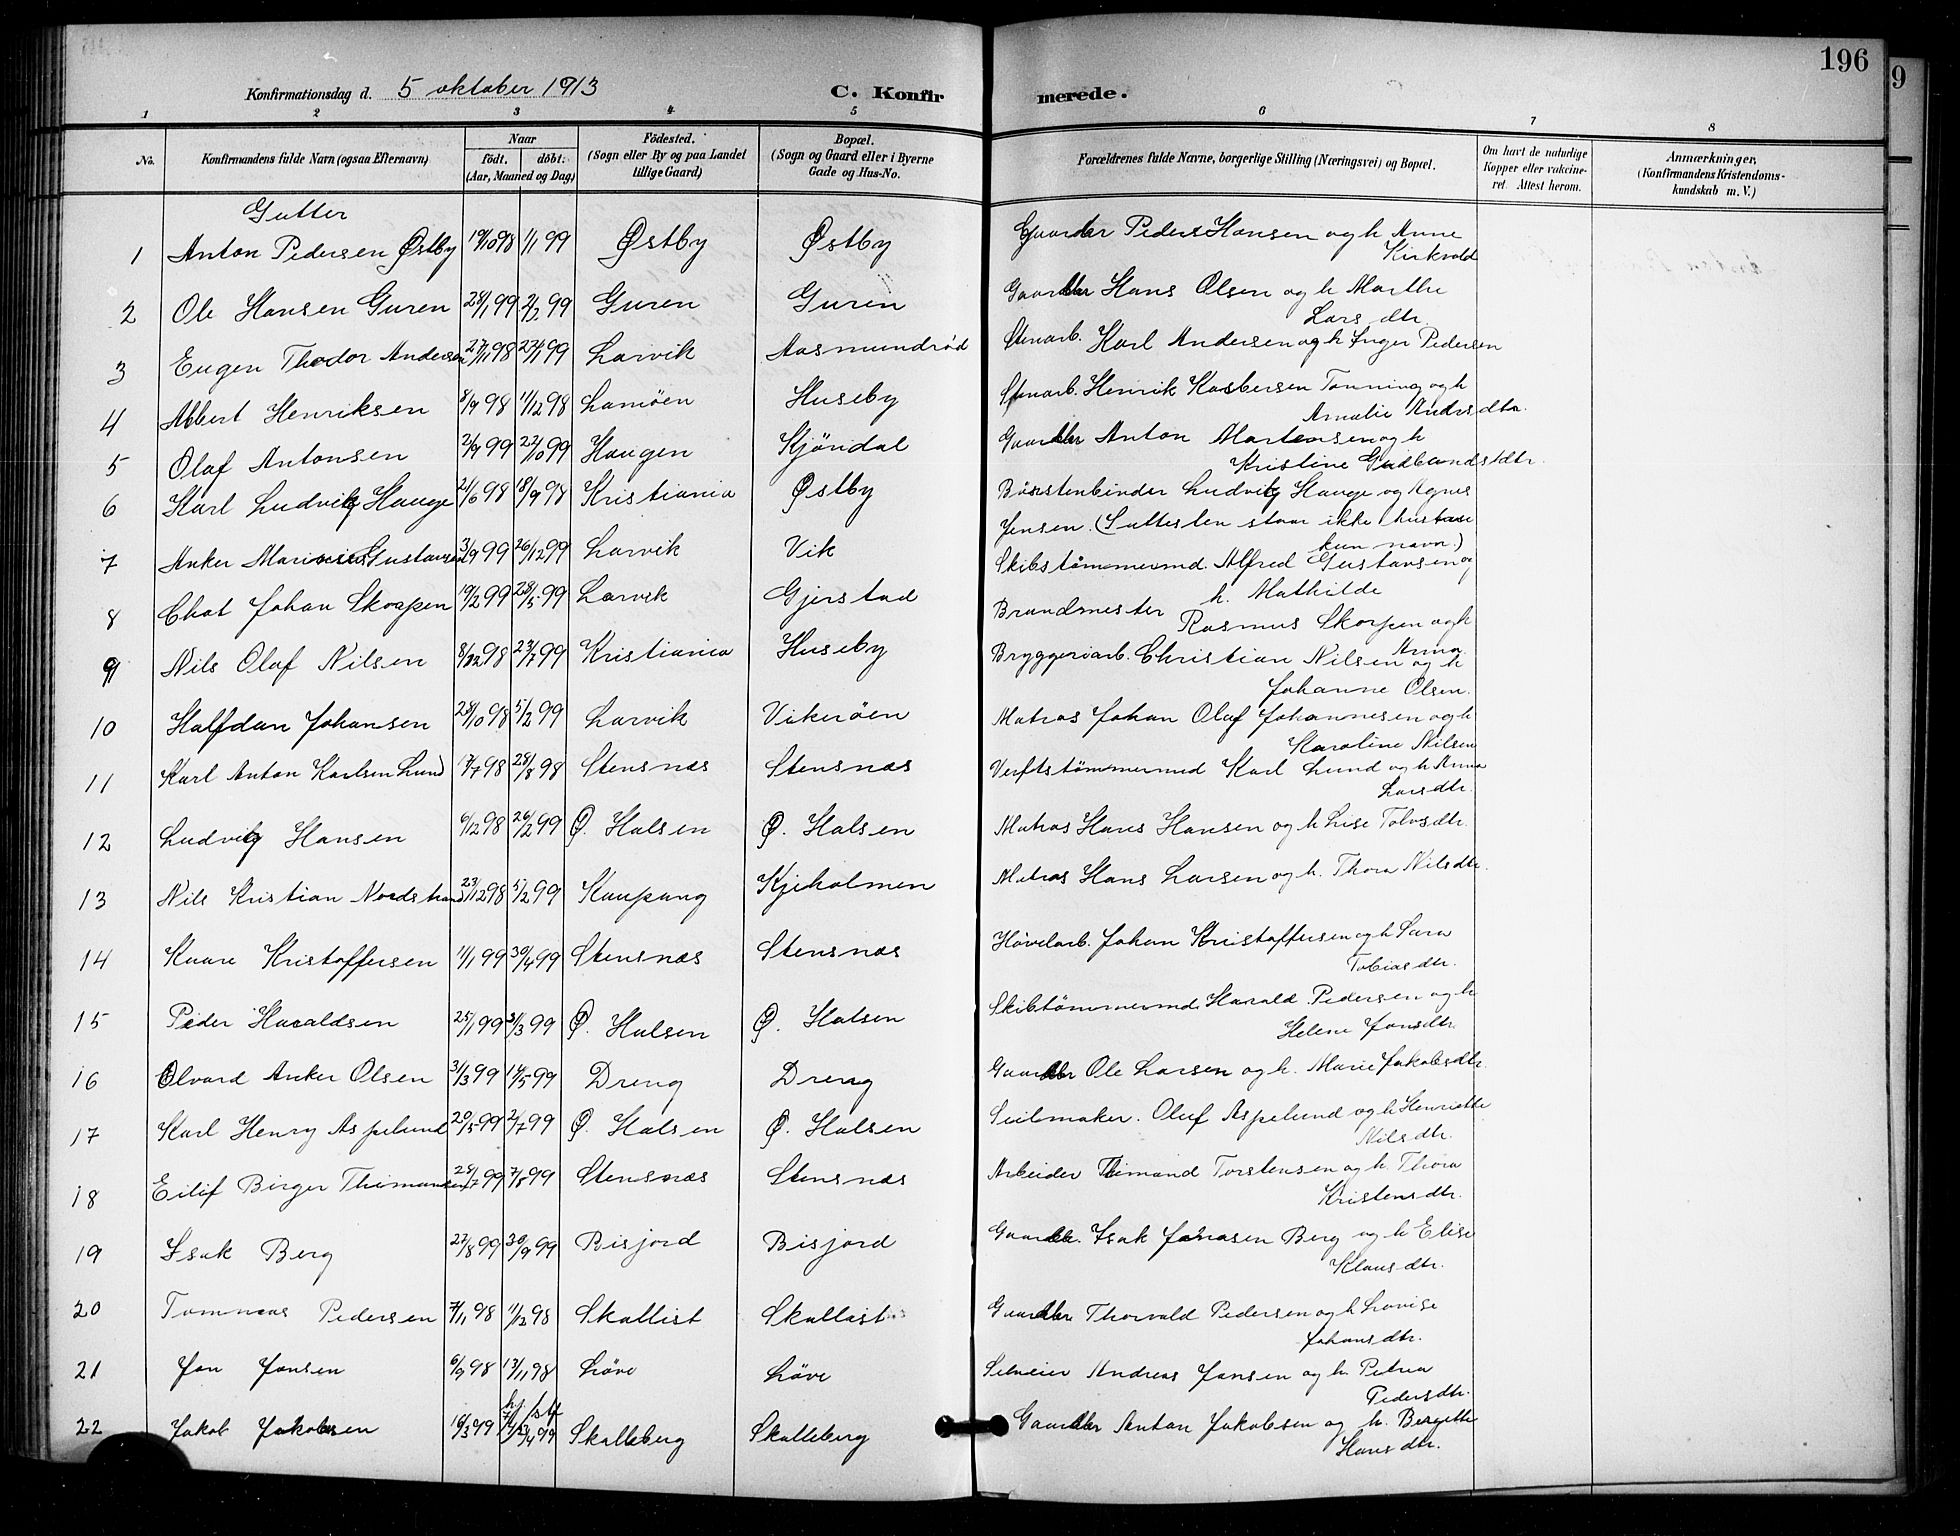 196
9
Konfirmationsdag d. 5 oktober 1913
C. Konfirmerede.
1 2 3 4 5 6 7 8
No.
Konfirmandens fulde Navn (ogsaa Efternavn)
Naar
födt. döbt.
(Aar, Maaned og Dag)
Födested.
(Sogn eller By og paa Landet
tillige Gaard)
Bopæl.
(Sogn og Gaard eller i Byerne
Gade og Hus-No.
Forældrenes fulde Navne, borgerlige Stilling (Næringsvei) og Bopæl.
Om havt de naturlige
Kopper eller vakcine-
ret. Attest herom.
Anmærkninger,
(Konfirmandens Kristendoms-
kundskab m. V.)
Gutter
1 Anton Pedersen Østby 19/10 98 1/1 99 Østby Østby Gaardbr Peder Hansen og h Anne
Kirkvold
2 Ole Hansen Guren 28/1 99 2/2 99 Guren Guren Gaardbr Hans Olsen og h Marthe
Lars dtr.
3 Eugen Theodor Andersen 27/11 98 22/1 99 Larvik Aasmundrød Stenarb. Karl Andersen og h Inger Pedersen
4 Albert Henriksen 8/9 98 11/12 98 Lamöen Huseby Stenarb. Henrik Kasbersen Tonning og h
Amalie Andrs dtr.
5 Olaf Antonsen 2/9 99 22/10 99 Haugen Kjöndal Gaardbr Anton Martensen og h
Kristine Gudbrands dtr.
6 Karl Ludvig Hauge 21/6 98 18/9 98 Kristiania Østby Börstenbinder Ludvig Hauge og Agnes
Jensen. (I attesten staar ikke hustrue
kun navn.)
7 Anker Marinius Gustavsen 3/9 99 26/12 99 Larvik Vik Skibstömmermd. Alfred Gustavsen og
h. Mathilde
8 Chat Johan Skorpen 19/2 99 28/5 99 Larvik Gjerstad Brandmester Rasmus Skorpen og h
Anna
9 Nils Olaf Nilsen 8/12 98 23/7 99 Kristiania Huseby Bryggeriarb. Christian Nilsen og h
Johanne Olsen.
10 Halfdan Johansen 28/10 98 5/2 99 Larvik Vikeröen Matros Johan Olaf Johannesen og h
Karoline Nilsen
11 Karl Anton Karlsen Lund 7/7 98 28/8 98 Stensnæs Stensnæs Verftstömmermd Karl Lund og h Anna
Lars dtr.
12 Ludvig Hansen 6/12 98 26/2 99 Ø. Halsen Ø. Halsen Matros Hans Hansen og h Lise Tolvs dtr.
13 Nils Kristian Nordstrand 23/12 98 5/2 99 Kaupang Kjeholmen Matros Hans Larsen og h. Thora Nils dtr.
14 Kaare Kristoffersen 11/1 99 30/4 99 Stensnæs Stensnæs Hövelarb. Johan Kristoffersen og h Sara
Tobias dtr.
15 Peder Haraldsen 25/1 99 31/3 99 Ø. Halsen Ø. Halsen Skibstömmermd. Harald Pedersen og h
Helene Jans dtr.
16 Olvard Anker Olsen 31/3 99 14/5 99 Dreng Dreng Gaardbr Ole Larsen og h. Marie Jakobs dtr.
17 Karl Henry Aspelund 20/5 99 2/7 99 Ø. Halsen Ø. Halsen Seilmaker. Oluf Aspelund og h Henriette
Nils dtr.
18 Eilif Birger Thimansen 28/7 99 7/8 99 Stensnæs Stensnæs Arbeider Timand Torstensen og h. Thora
Kristens dtr.
19 Isak Berg 27/8 99 30/9 99 Bisjord Bisjord Gaardbr. Isak Johnsen Berg og h Elise
Klaus dtr.
20 Tommas Pedersen 7/1 98 11/2 98 Skallist Skallist Gaardbr Thorvald Pedersen og h Lovise
Johans dtr.
21 Jan Jansen 6/9 98 13/11 98 Löve Löve Selveier Andreas Jansen og h. Petrea
Peders dtr.
hj. /stf
22 Jakob Jakobsen 16/3 99 2/4 99 Skalleberg Skalleberg Gaardbr Anton Jakobsen og h. Bergitte
Hans dtr.